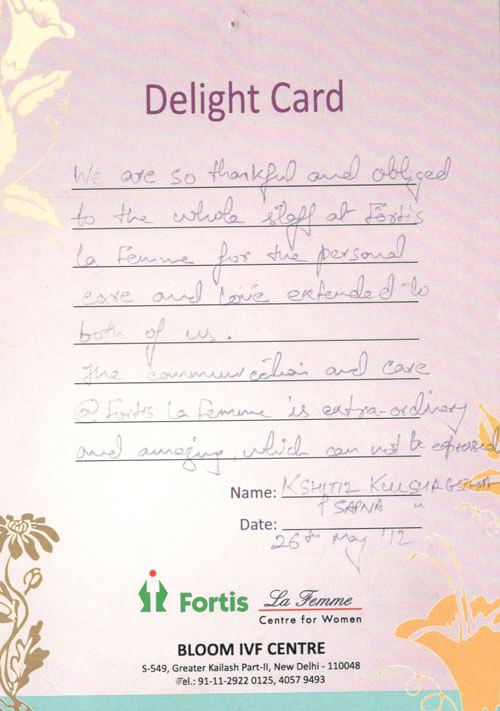 Delight Card
We are so thankful and obliged
to the whole staff at Fortis
La Femme for the personal
care and love extended to
both of us.
The communication and care
@ Fortis La Femme is extra-ordinary
and amazing, which can not be expressed
Name: KSHITIZ
& SAPNA "
Date: 26th May '12
Fortis La Femme
Centre for Women
BLOOM IVF CENTRE
S-549, Greater Kailash Part-II, New Delhi - 110048
Tel.: 91-11-2922 0125, 4057 9493